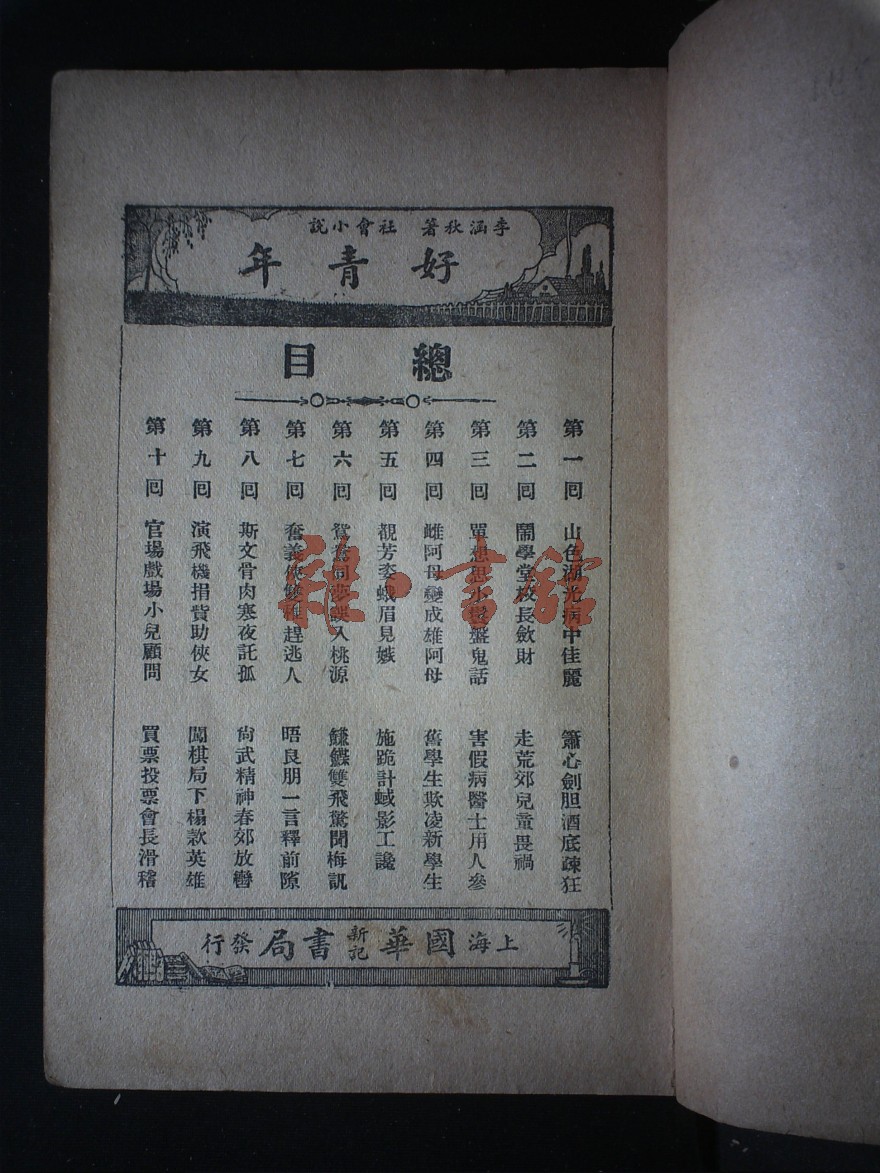 李涵秋著 社會小說
好青年
總目
第一回 山色湖光病中佳麗 簫心劍胆酒底疎狂
第二回 鬧學堂校長斂財 走荒郊兒童畏禍
第三回 單想思小鬟盤鬼話 害假病醫士用人參
第四回 雌阿母變成雄阿母 舊學生欺凌新學生
第五回 覩芳姿蛾眉見嫉 施詭計蜮影工讒
第六回 鴛鴦同夢誤入桃源 鰜鰈雙飛驚聞梅訊
第七回 奮義俠雙騎趕逃人 晤良朋一言釋前隙
第八回 斯文骨肉寒夜託孤 尙武精神春郊放轡
第九回 演飛機捐貲助俠女 闖棋局下榻款英雄
第十回 官場戲場小兒顧問 買票投票會長滑稽
上海國華新記書局發行